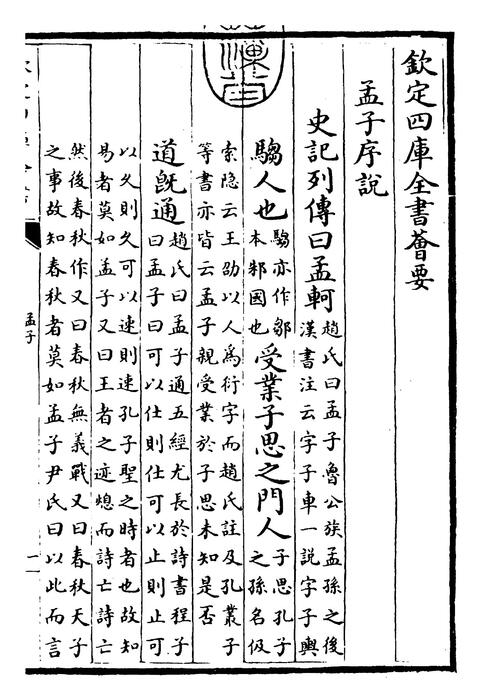 欽定四庫全書薈要
孟子序說
史記列傳曰孟軻趙氏曰孟子魯公族孟孫之後
漢書注云字子車一說字子輿
騶人也騶亦作鄒
本邾國也受業子思之門人子思孔子
之孫名伋
索隐云王劭以人為衍字而趙氏註及孔叢子
等書亦皆云孟子親受業於子思未知是否
道既通趙氏曰孟子通五經尤長於詩書程子
曰孟子曰可以仕則仕可以止則止可
以久則久可以速則速孔子聖之時者也故知
易者莫如孟子又曰王者之迹熄而詩亡詩亡
然後春秋作又曰春秋無義戰又曰春秋天子
之事故知春秋者莫如孟子尹氏曰以此而言
孟子
一